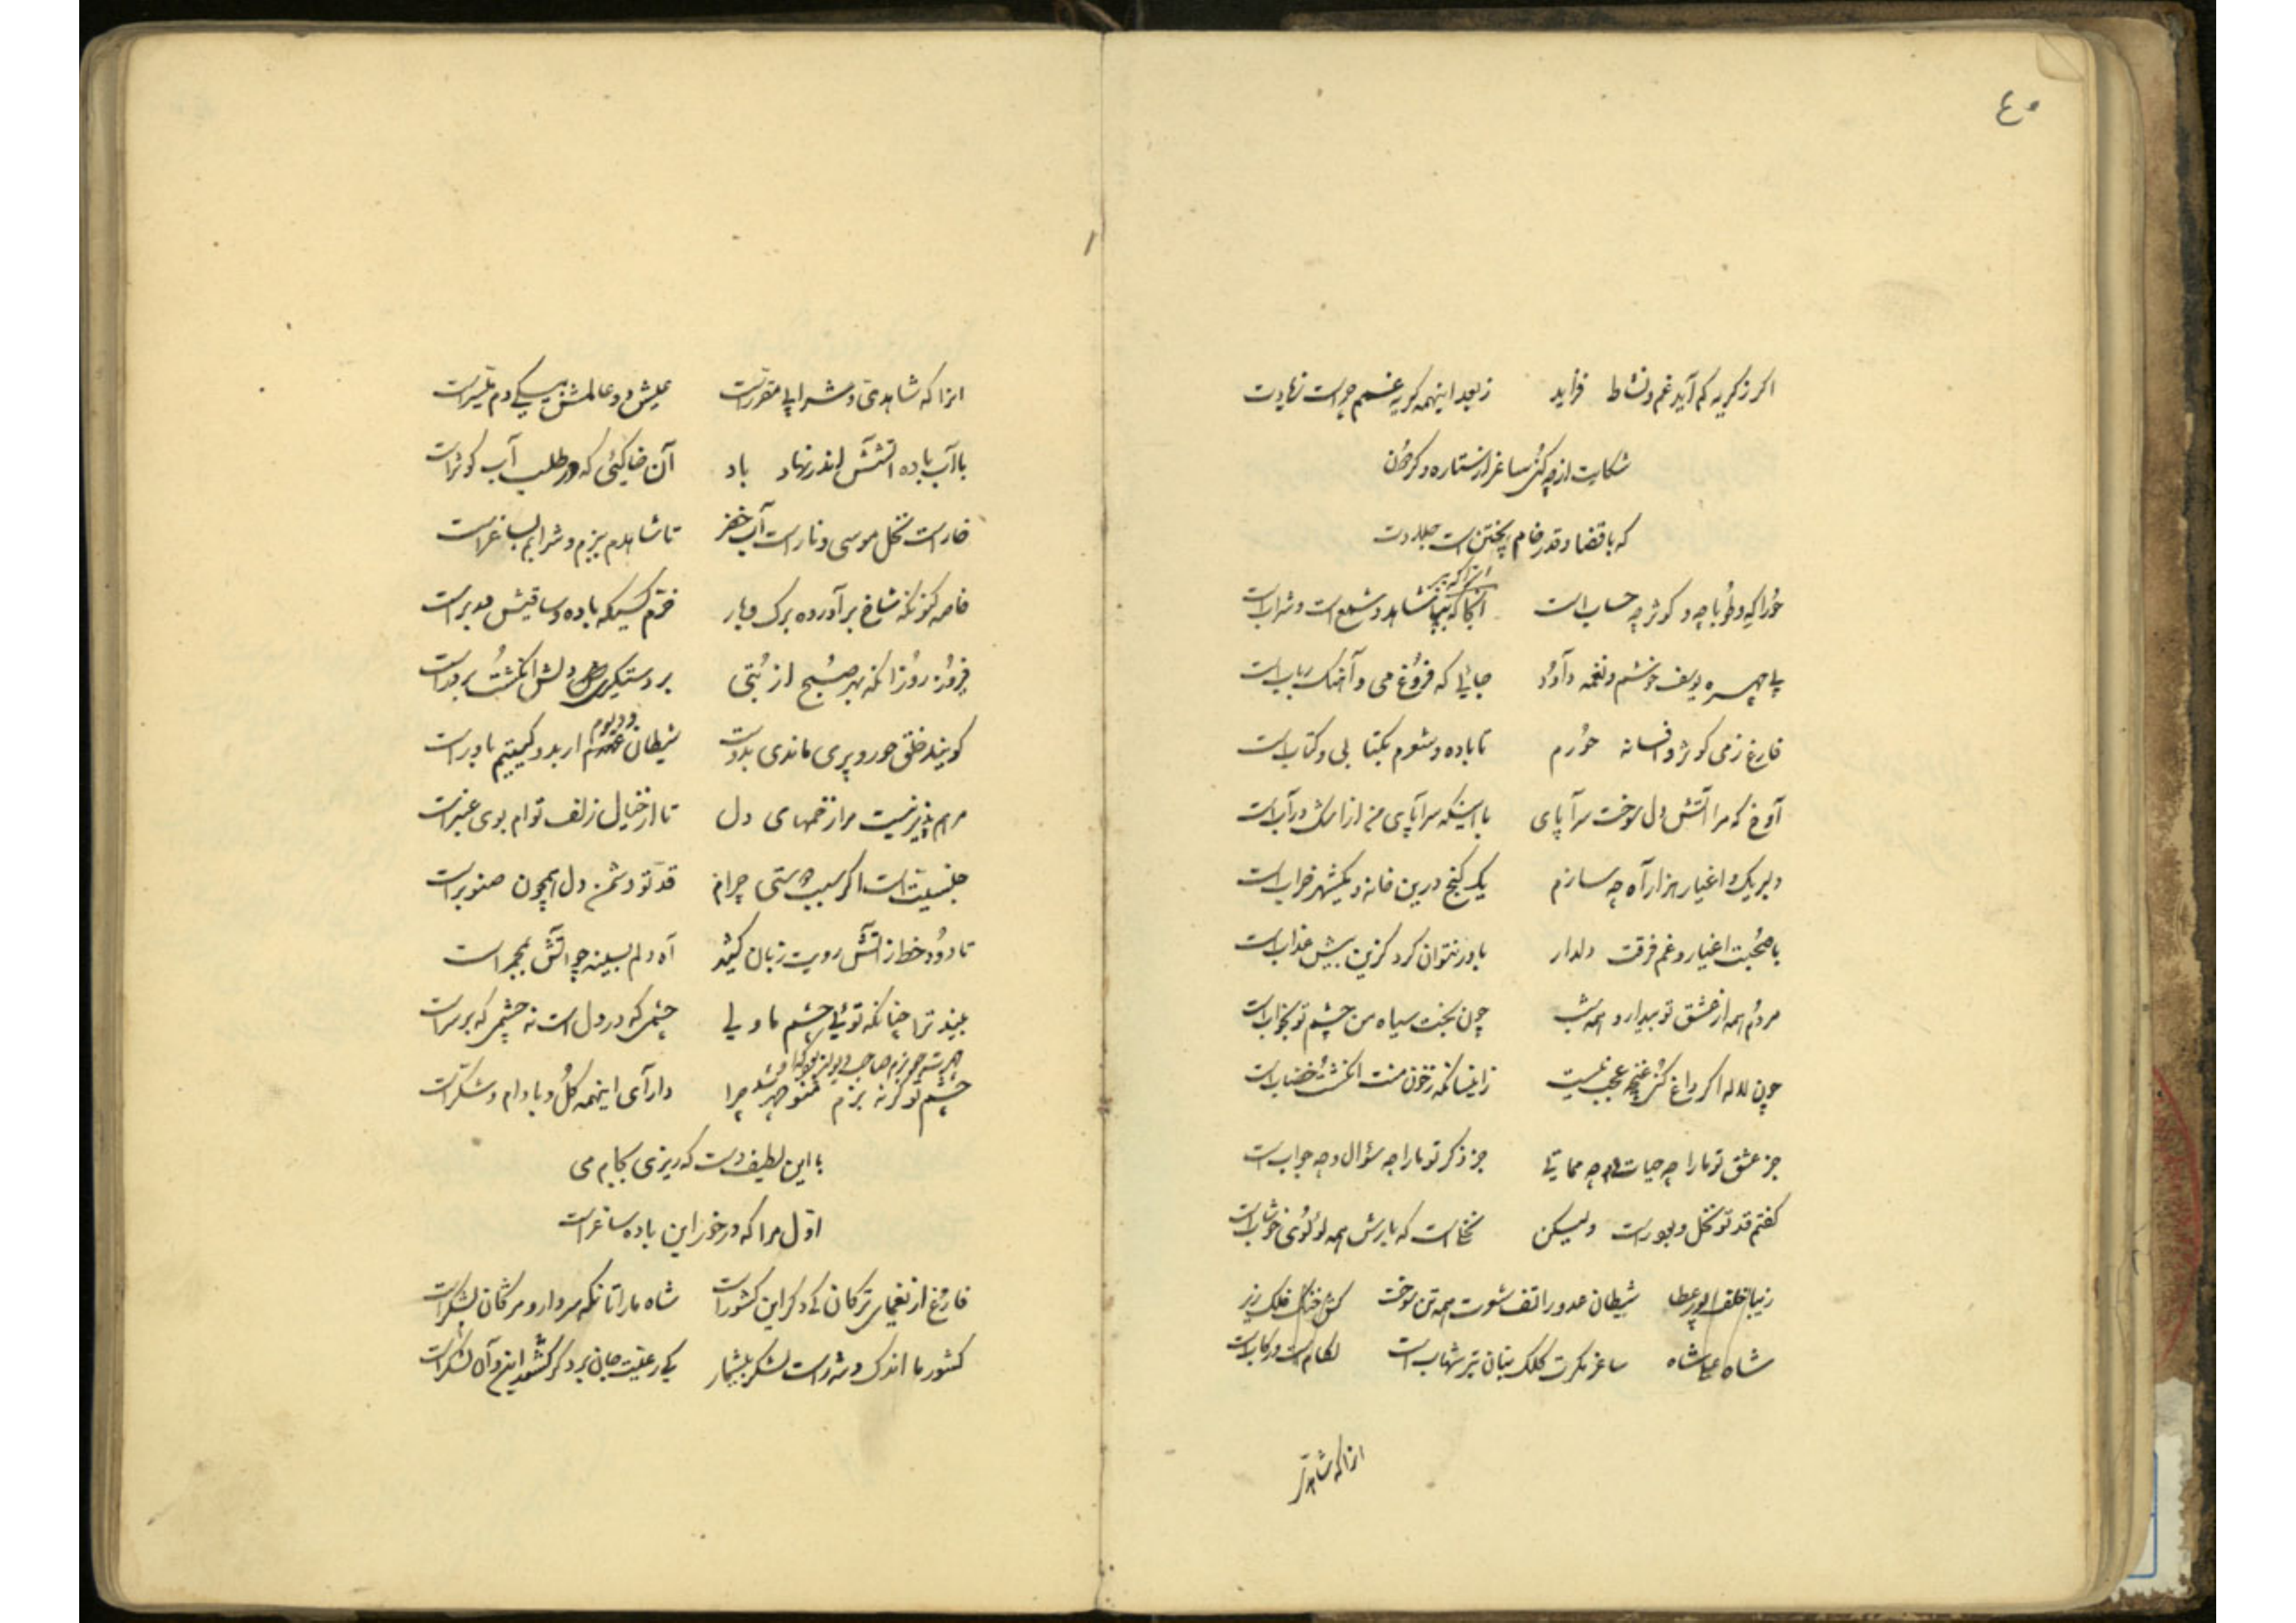 ٤٠
اکر ز کریه کم آید غم و نشاط فزاید ز بعد اینهمه کریه غمم چراست زیادت
شکایت از چه کنی ساغر از ستاره و کردون
که با قضا و قدر خام پختن است جلادت
آنرا که بتی
حورا که و طوبا چه و کوثر چه حساب است آنجا که شاهد و شمع است و شراب است
با چهره یوسف خوشم و نغمه داود جائی که فروغ می و آهنک رباب است
فارغ ز می کوثر و افسانه حورم تا باده و شورم بکتابی و کتاب است
آوخ که مرا آتش دل سوخت سراپای با اینکه سراپای من از اشک در آب است
دلبر یک و اغیار هزار آه چه سازم یک کنج درین خانه و یکشهر خراب است
با صحبت اغیار و غم فرقت دلدار باور نتوان کرد کزین بیش عذاب است
مردم همه از عشق تو بیدار و همه شب چون بخت سیاه من چشم تو بخواب است
چون لاله اکر داغ کنی غنچه عجب نیست زانسانکه ز خون منت انکشت خضاب است
جز عشق تو ما را چه حیات و چه مماتی جز ذکر تو ما را چه سؤال و چه جواب است
کفتم قد تو نخل و بور است ولیکن نخل است که بارش همه لؤلؤی خوشاب است
زیبا خلف پور عطا شیطان عدو را تف سوت همه تن سوخت کش خنک فلک زیر
شاه عباشاه ساغر مکرت کلک بنان تیر شهاب است لکام است و رکاب است
انرا که شاهدی
انرا که شاهدی و شرابی مقرر است عیش دو عالمش بیکی دم میسر است
با آب باده آتشش اندر نهاد باد آن خاکئی که در طلب آب کوثر است
خار است نخل موسی و نار است آب خضر تا شاهدم ببزم و شرابم بساغر است
خاصه کنونکه شاخ برآورده برک و بار خرم کسیکه باده و ساقیش در بر است
فیروز روز آنکه بهر صبح از بتی بر دستیکی دلش انکشت بر در است
کویند خلق حور و پری ماندی بدوست شیطان دو دیوم ار بدو کیتیم باور است
مرهم پذیر نیست مرا زخمهای دل تا از خیال زلف توام بوی عنبر است
جنسیت است اکر سبب دوستی چرا قد تو دشمن دل همچون صنوبر است
تا دود خط ز آتش رویت زبان کشید آه دلم بسینه چو آتش بمجمر است
بیند ترا چنانکه توئی چشم ما ولی چشمی که در دل است نه چشمی که بر سر است
چشم تو کر نه بزم منوچهر شد چرا دارای اینهمه کل و بادام و شکر است
با این لطیفه است که ریزی بکام می
اول مرا که درخور این باده ساغر است
فارغ از نغمهای ترکان کی دکر این کشور است شاه ما را تا نکه سردار و مژکان لشکر است
کشور ما اندک و شه راست لشکر بیشمار کی رعیت جان برد کر کشور این و آن لشکر است